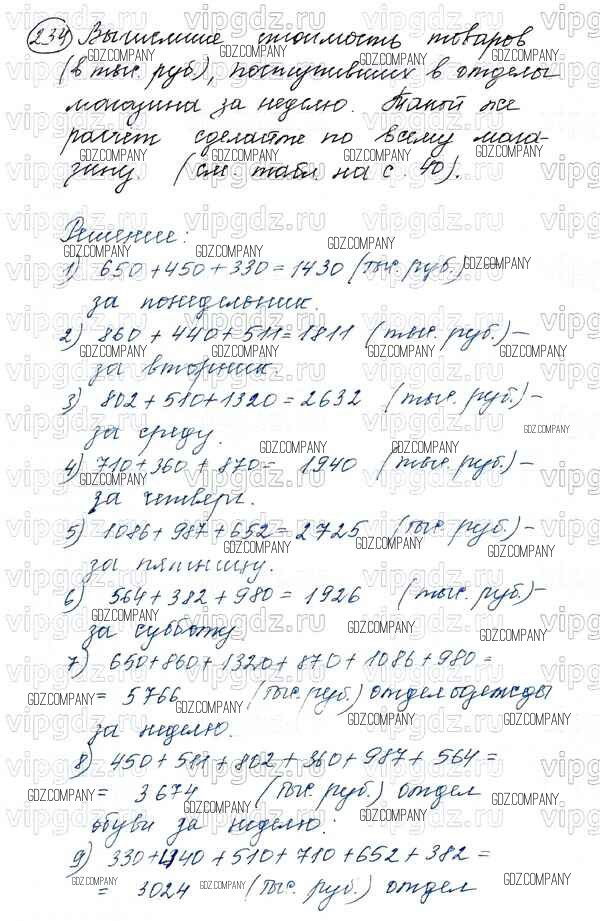 234 Вычислите стоимость товаров
(в тыс. руб.), поступивших в отделы
магазина за неделю. Такой же
расчет сделайте по всему мага-
зину (см. табл. на с. 40).
Решение:
1) 650 + 450 + 330 = 1430 (тыс. руб.) —
за понедельник.
2) 860 + 440 + 511 = 1811 (тыс. руб.) —
за вторник.
3) 802 + 510 + 1320 = 2632 (тыс. руб.) —
за среду.
4) 710 + 360 + 870 = 1940 (тыс. руб.) —
за четверг.
5) 1086 + 987 + 652 = 2725 (тыс. руб.) —
за пятницу.
6) 564 + 382 + 980 = 1926 (тыс. руб.) —
за субботу
7) 650 + 860 + 1320 + 870 + 1086 + 980 =
= 5766 (тыс. руб.) отдел одежды
за неделю.
8) 450 + 511 + 802 + 360 + 987 + 564 =
= 3674 (тыс. руб.) отдел
обуви за неделю.
9) 330 + 440 + 510 + 710 + 652 + 382 =
= 3024 (тыс. руб.) отдел
vipgdz.ru
GDZ.COMPANY